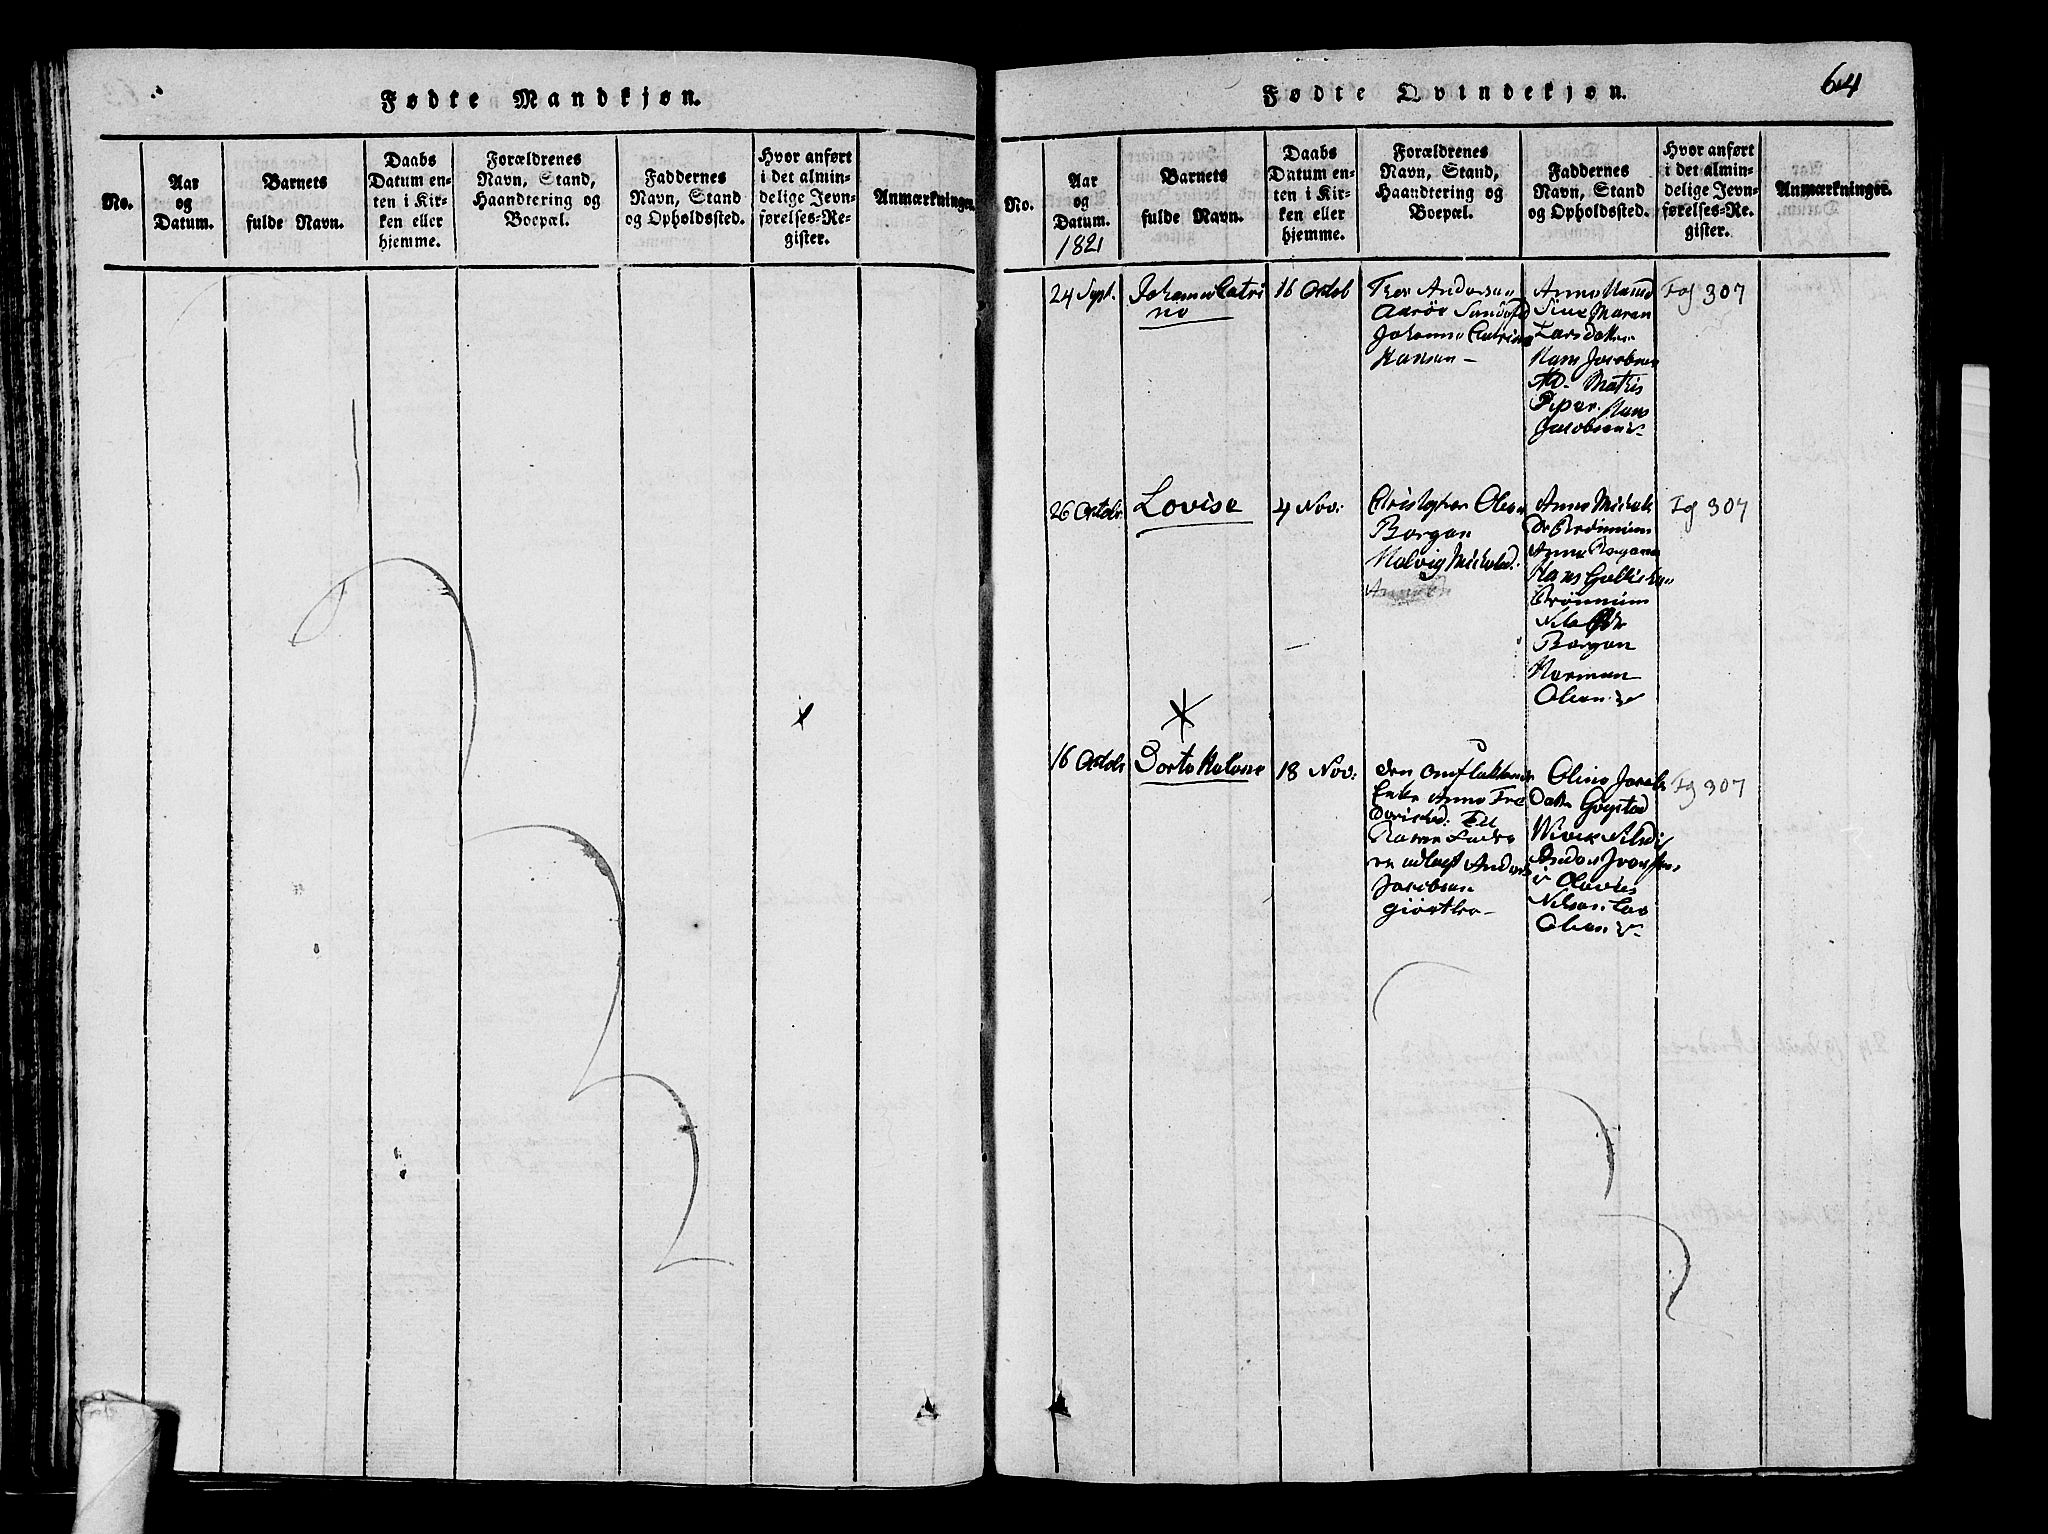 Fødte Mandkjøn.
No.
Aar
og
Datum.
Barnets
fulde Navn.
Daabs
Datum en-
ten i Kir-
ken eller
hjemme.
Forældrenes
Navn, Stand,
Haandtering og
Boepæl.
Faddernes
Navn, Stand
og Opholdssted.
Hvor anført
i det almin-
delige Jevn-
førelses-Re-
gister.
Anmærkninger.
Fødte Qvindekjøn.
64
No.
Aar
og
Datum.
1821
Barnets
fulde Navn.
Daabs
Datum en-
ten i Kir-
ken eller
hjemme.
Forældrenes
Navn, Stand,
Haandtering og
Boepæl.
Faddernes
Navn, Stand
og Opholdssted.
Hvor anført
i det almin-
delige Jevn-
førelses-Re-
gister.
Anmærkninger.
24 Sept.
Johanne Catri
ne
16 Octob
Thor Andersen
Aarøe
Johanne Catrine
Hansen -
Anne Hansd
Maren
Larsdatter
Hans Jacobsen
Mathis
Piper. Hans
Jacobsen
Fol 307
26 Octobr
Lovise
4 Nov:
Christopher Olsen
Borgen
Michelsd.
Anne Michels
Dr
Anne Borgen
Hans
Brönnum
Nils
Borgen
Herman
Olsen
Fg 307
16 Octobr
Dorte Helene
18 Nov:
den omflakkende
Enke Anne Fre
udlagt Anders
Jacobsen
Oline Jacobs
Datter Gogstad
Nilsd
i
Nilsen Lars
Olsen
Fg 307